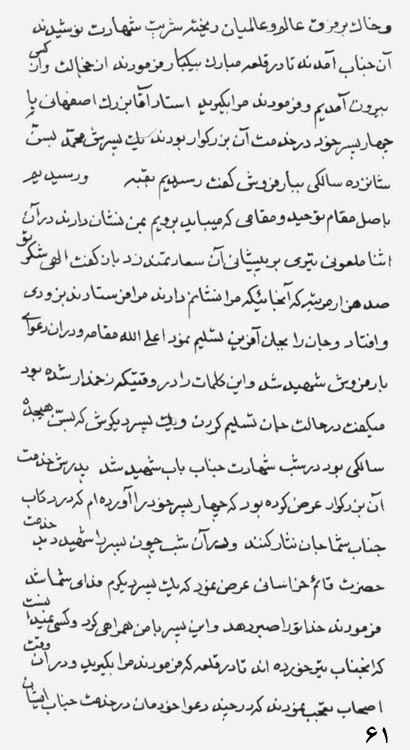 و خاک بر فرق عالم و عالمیان ریخته شربت شهادت نوشیدند
آن جناب آمدند تا در قلعه مبارک بیکبار فرمودند از خجالت وان کسی
بیرون آمدیم و فرمودند مرا بگیرید استاد آقا بزرگ اصفهانی با
چهار پسر خود در خدمت آن بزرگوار بودند یک پسرش محمد بسن
شانزده سالگی ببار فروش گفت رسیدیم بقیه ورسیدیم
باصل مقام توحید و مقامی که میباید برویم بمن نشان دارند در آن
اثنا ملعونی تیری بر پیشانی آن سعادتمند زد بان گفت الهی شکر تو
صد هزار مرتبه که آنجائیکه مرا نشانم دارند مرا فرستادند بزودی
و افتاد و جان را بجان آفرین تسلیم نمود اعلی الله مقامه و در آن دعوای
بارفروش شهید شد و این کلمات را در وقتیکه زخمدار شده بود
میگفت در حالت جان تسلیم کردن و یک پسر دیگرش که بسن هیجده
سالگی بود در شب شهادت جناب باب شهید شد پدرش خدمت
آن بزرگوار عرض کرده بود که چهار پسر خود را آورده ام که در رکاب
جناب شما جان نثار کنند و در آن شب چون پسر را شهید دید خدمت
حضرت قائم خراسانی عرض نمود که یک پسر دیگرم فدای شما شد
فرمودند خدا تو را صبر دهد و این پسر با من همراهی کرد و کسی نمیدانست
که انجناب تیر خورده اند تا در قلعه که فرمودند مرا بگیرید و در آن وقت
اصحاب تعجب نمودند که در چند دعوا خودمان در خدمت جناب ایشان
۶۱